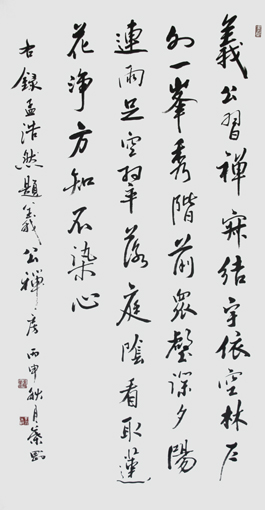 義公習禪寂結宇依空林戶
外一峯秀階前眾壑深夕陽
連雨足空翠落庭陰看取蓮
花淨方知不染心
右錄孟浩然題義公禪房丙申秋月